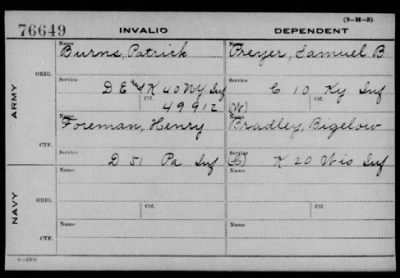 (3-M-5)
76649 INVALID DEPENDENT
ARMY
ORIG.
Name Burns, Patrick
Name Freyer, Samuel B
Service D E & K 40 NY Inf
Ctf. 49912
Service C 10 Ky Inf
Ctf. (W)
CTF.
Name Foreman, Henry
Name Bradley, Bigelow
Service D 51 Pa Inf
Service (C) K 20 Wis Inf
NAVY
ORIG.
Name
Name
Service
Ctf.
Service
Ctf.
CTF.
Name
Name